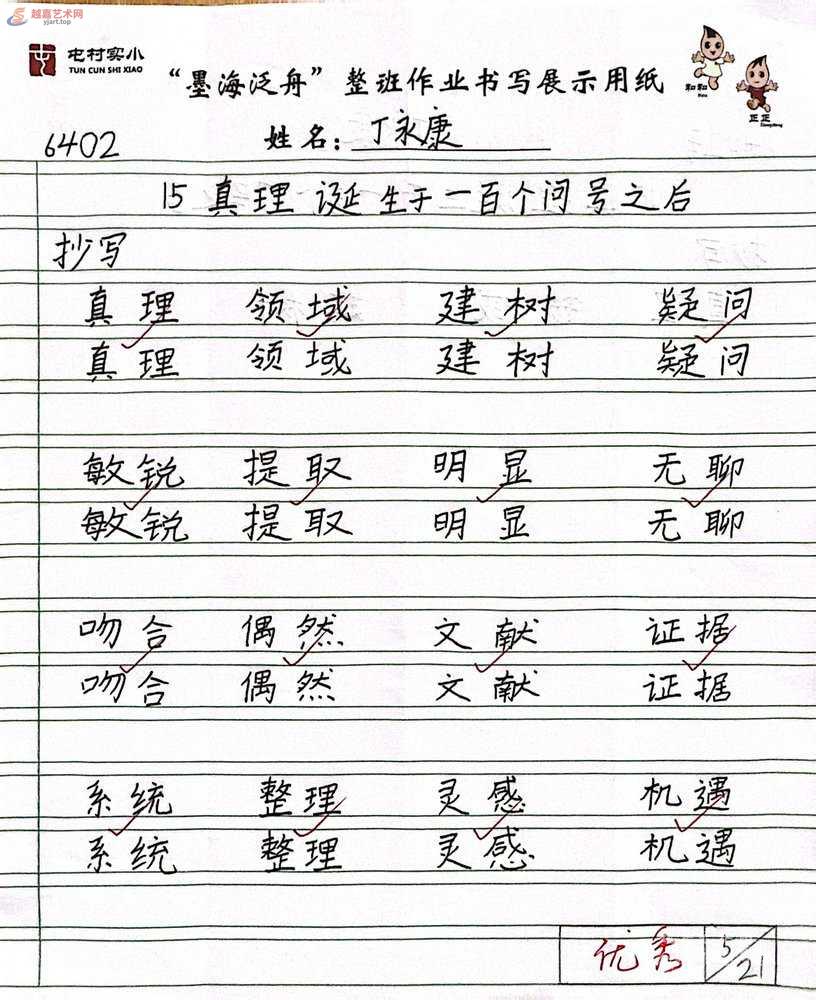 越嘉艺术网
yjart.top
屯村实小
TUN CUN SHI XIAO
“墨海泛舟”整班作业书写展示用纸
和和
正正
6402 姓名：丁永康
15 真理诞生于一百个问号之后
抄写
真理 领域 建树 疑问
真理 领域 建树 疑问
敏锐 提取 明显 无聊
敏锐 提取 明显 无聊
吻合 偶然 文献 证据
吻合 偶然 文献 证据
系统 整理 灵感 机遇
系统 整理 灵感 机遇
优秀 5/21